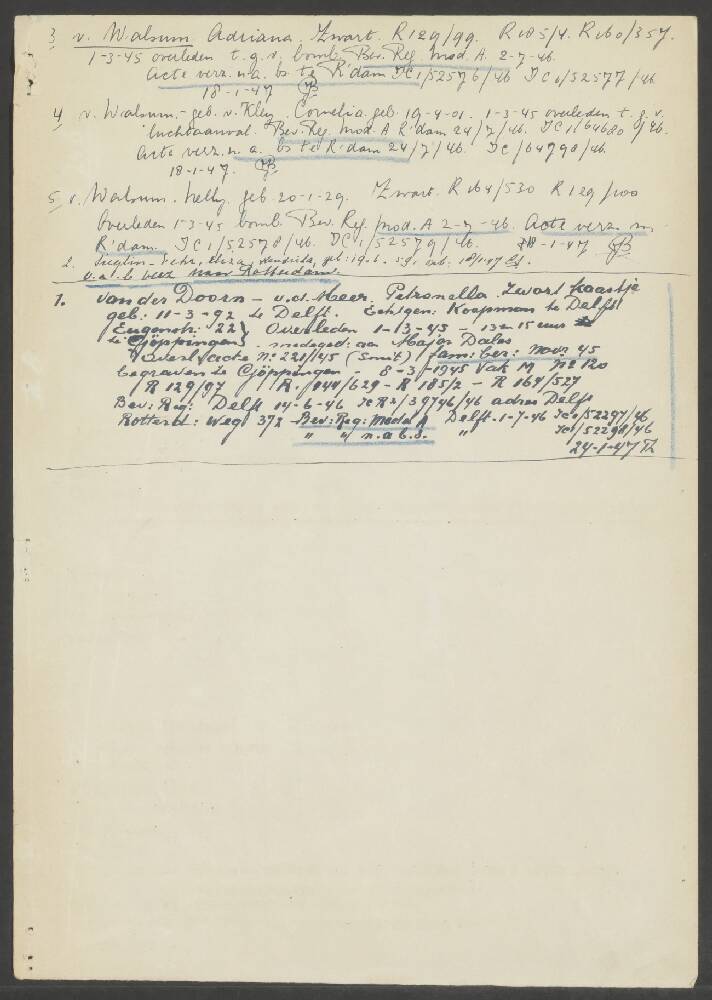 3 v. Walsum Adriana. Zwart. R129/99. R185/4. R160/357.
1-3-45 overleden t.g.v. bomb. Bev. Reg. mod. A. 2-7-46.
Acte verz. n.a. bs te R'dam JC1/52576/46 JC1/52577/46
18-1-47
4 v. Walsum.- geb. v. Kley. Cornelia geb. 19-4-01. 1-3-45 overleden t.g.v.
luchtaanval. Bev. Reg. mod. A R'dam 24/7/46. JC1/64680/46.
Acte verz. n. a. bs te R'dam 24/7/46. JC/64790/46.
18-1-47.
5 v. Walsum. Nelly. geb. 20-1-29. Zwart. R164/530 R129/100
Overleden 1-3-45 bomb. Bev. Reg. mod. A 2-7-46. Acte verz. n.
R'dam. JC1/52578/46. JC1/52579/46. 18-1-47
2. geb: 19-6-
v.a.b. verz naar Rotterdam.
1. van der Doorn - v.d. Meer. Petronella. Zwart kaartje
geb: 11-3-92 te Delft. Echtgen: Koopman te Delft
Eugenstr: 22 } Overleden 1-13-45 - 13 15 uur
te Göppingen } - medeged: aan Major Dales
Overl. acte No: 221/45 (Smit) fam: ber: Nov: 45
begraven te Göppingen - 8-3-1945 Vak M No 120
R 129/97 R. 844/629 - R 185/2 - R 164/527
Bev: Reg: Delft 14-6-46 JCR2/39746/46 adres Delft
Rotterd: weg 372 - Bev: Reg: Model A Delft - 1-7-46 JC1/52297/46
" " n.a.b.s. " JC1/52298/46
24-1-47